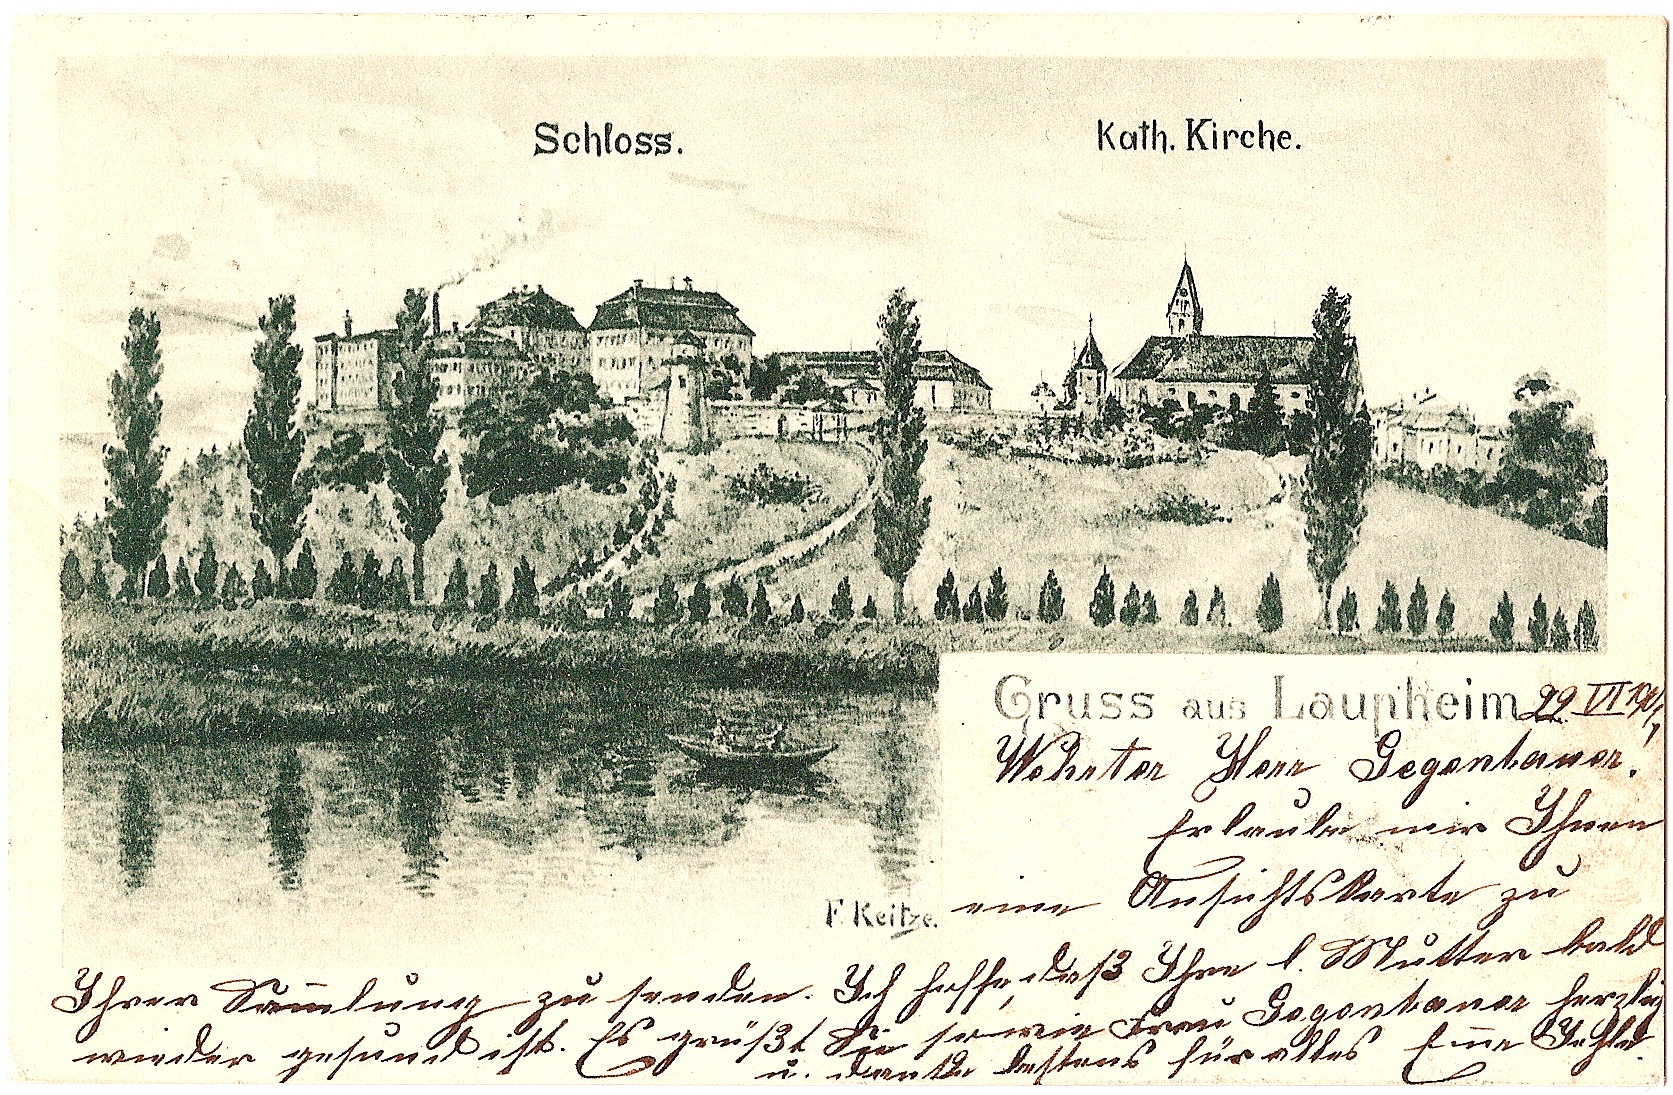 Schloss.
Kath. Kirche.
Gruss aus Laupheim 22. VI 1901
Wehrter Herr Gegenbauer.
Erlaube mir Ihnen
eine Ansichtskarte zu
F. Keitze.
Ihrer Sam̅lung zu senden. Ich hoffe, daß Ihre l. Mutter bald
wieder gesund ist. Es grüßt Sie sowie Frau Gegenbauer herzlich
u. danke bestens für alles Em̅e